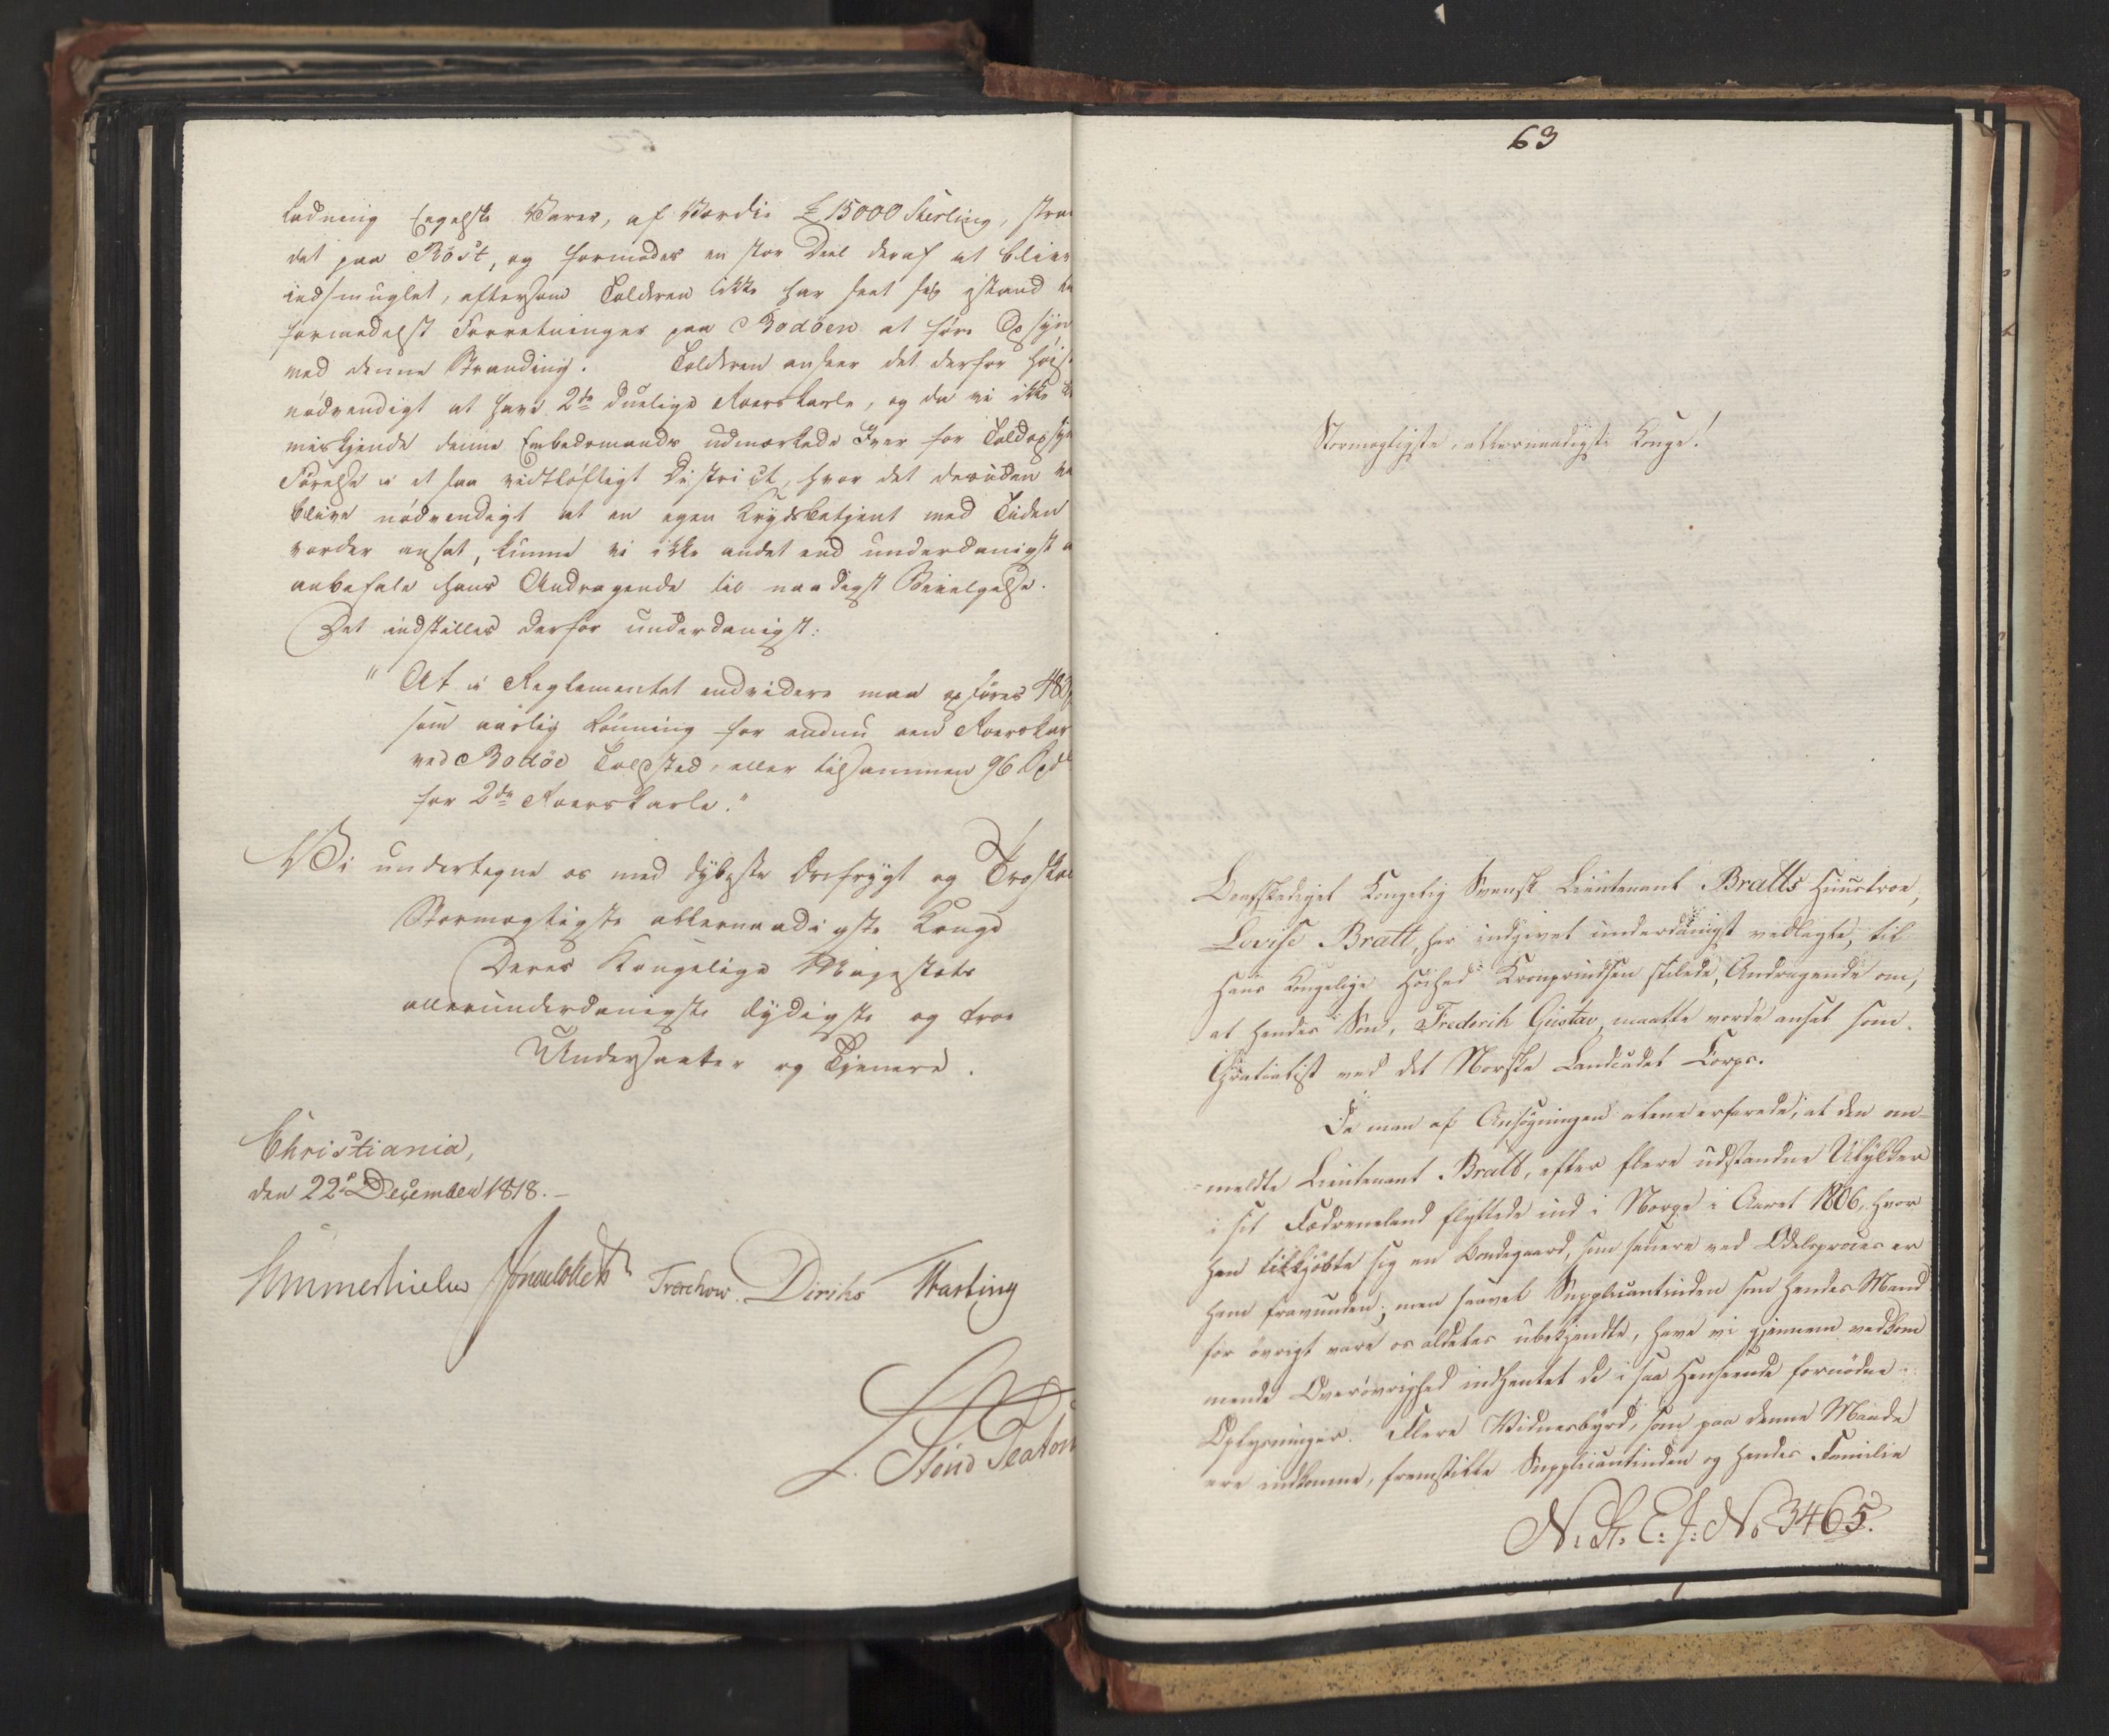 Ladning Engelske Varer, af Værdie £ 15000 Sterling, stran
det paa Röst, og formodes en stor Deel deraf at blive
indsmuglet, eftersom Tolderen ikke har seet sig istand
formedelst Forretninger paa Bodöen at före Opsyn
med denne Stranding. Tolderen anseer det derfor höist
nödvendigt at have 2de duelige Roerskarle, og da vi ikke
miskjende denne Embedsmands udmærkede Iver for Toldopsyn
Förelse i et saa vidtlöftigt District, hvor det desuden
blive nödvendigt at en egen Krydsbetjent med Tiden
vorder ansat, kunne vi ikke andet end underdanigst
anbefale hans Andragende til naadigst Bevilgelse.
Det indstilles derfor underdanigst:
"At i Reglementet endvidere maa opföres 48
som aarlig Lönning for endnu een Roerskar
ved Bodöe Toldsted, eller tilsammen 96 Spd
for 2de Roerskarle."
Vi undertegne os med dybeste Ærefrygt og Troskab
Stormægtigste allernaadigste Konge
Deres Kongelige Majestæts
allerunderdanigste lydigste og troe
Undersaatter og Tjenere.
Christiania,
den 22de December 1818.-
Sommerhielm Treschow. Diriks Fasting
63
Stormægtigste, allernaadigste Konge!
Den afskediget Kongelig Svensk Lieutenant Bratts Huustroe,
Lovise Bratt, har indgivet underdanigst vedlagte, til
Hans Kongelige Höihed Kronprindsen stilede, Andragende om,
at hendes Sön, Frederik Gustav, maatte vorde ansat som
Gratialist ved det Norske Landcadet Corps.
Da man af Ansögningen alene erfarede, at den om-
-meldte Lieutenant Bratt, efter flere udstandne Ulykker
i sit Födreneland flyttede ind i Norge i Aaret 1806, hvor
han tilkjöbte sig en Bondegaard, som senere ved Odelsproces er
ham fravunden; men saavel Supplicantinden som hendes Mand
for övrigt vare os aldeles ubekjendte, have vi gjennem vedkom
mende Overövrighed indhentet de i saa Henseende fornödne
Oplysninger. Flere Vidnesbyrd, som paa denne Maade
ere indkomne, fremstille Supplicantinden og hendes Familie
N. St. E. J: No 3465.